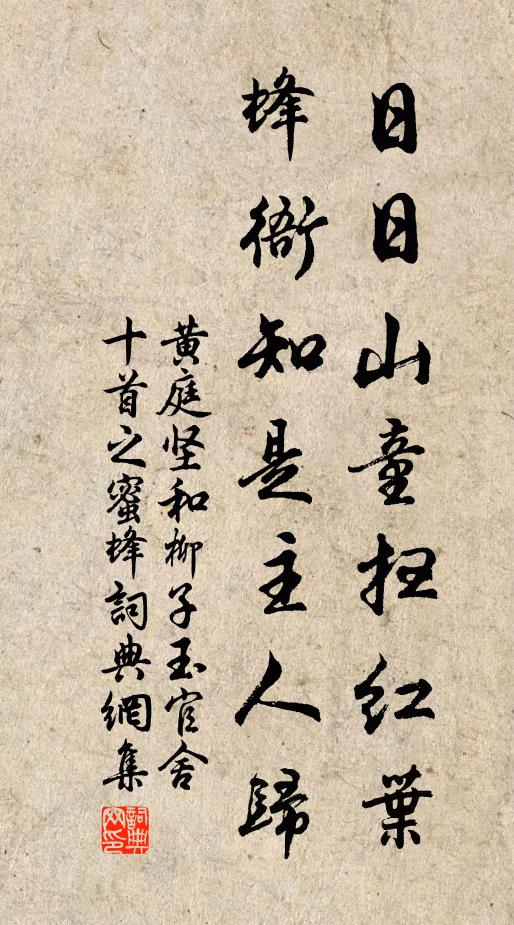 日日山童扫红葉
蜂衙知是主人歸
黄庭坚和柳子玉官舍
十首之蜜蜂詞典網集
詞典
网印